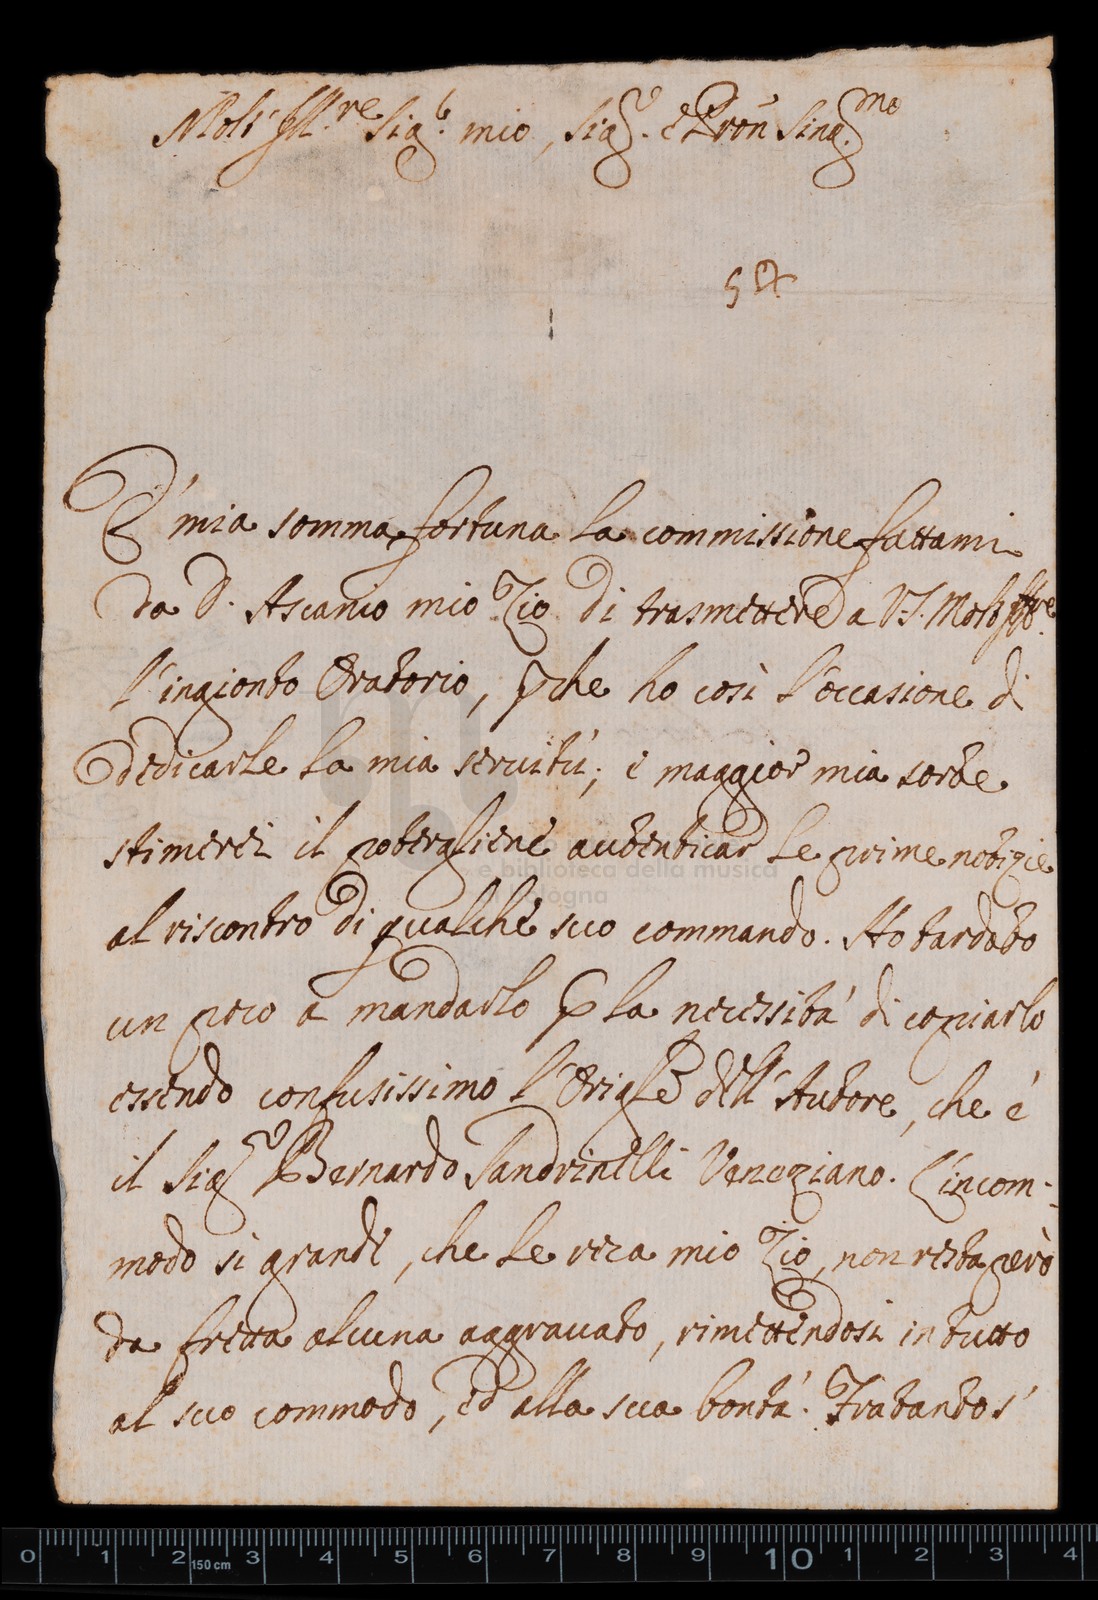 Molt' Ill.re Sig.r mio, Sig.r e Pron Sing.mo
57
E' mia somma fortuna la commissione fattami
da D. Ascanio mio Zio di trasmettere a V.S. Molt' Ill.re
l'ingionto Oratorio, pche ho così l'occasione di
dedicarle la mia seruitù; e maggior mia sorte
stimerei il potergliene autenticar le prime notizie
al riscontro di qualche suo commando. Ho tardato
un poco a mandarlo p la necessità di copiarlo
essendo confusissimo l'Origle dell' Autore, che è
il Sig.r Bernardo Sandrinelli Veneziano. L'incom-
modo sì grande, che le reca mio Zio, non resta però
da fretta alcuna aggrauato, rimettendosi in tutto
al suo commodo, ed alla sua bontà. Fratanto s'
e biblioteca della musica
di bologna
0 1 2 150 cm 3 4 5 6 7 8 9 10 1 2 3 4